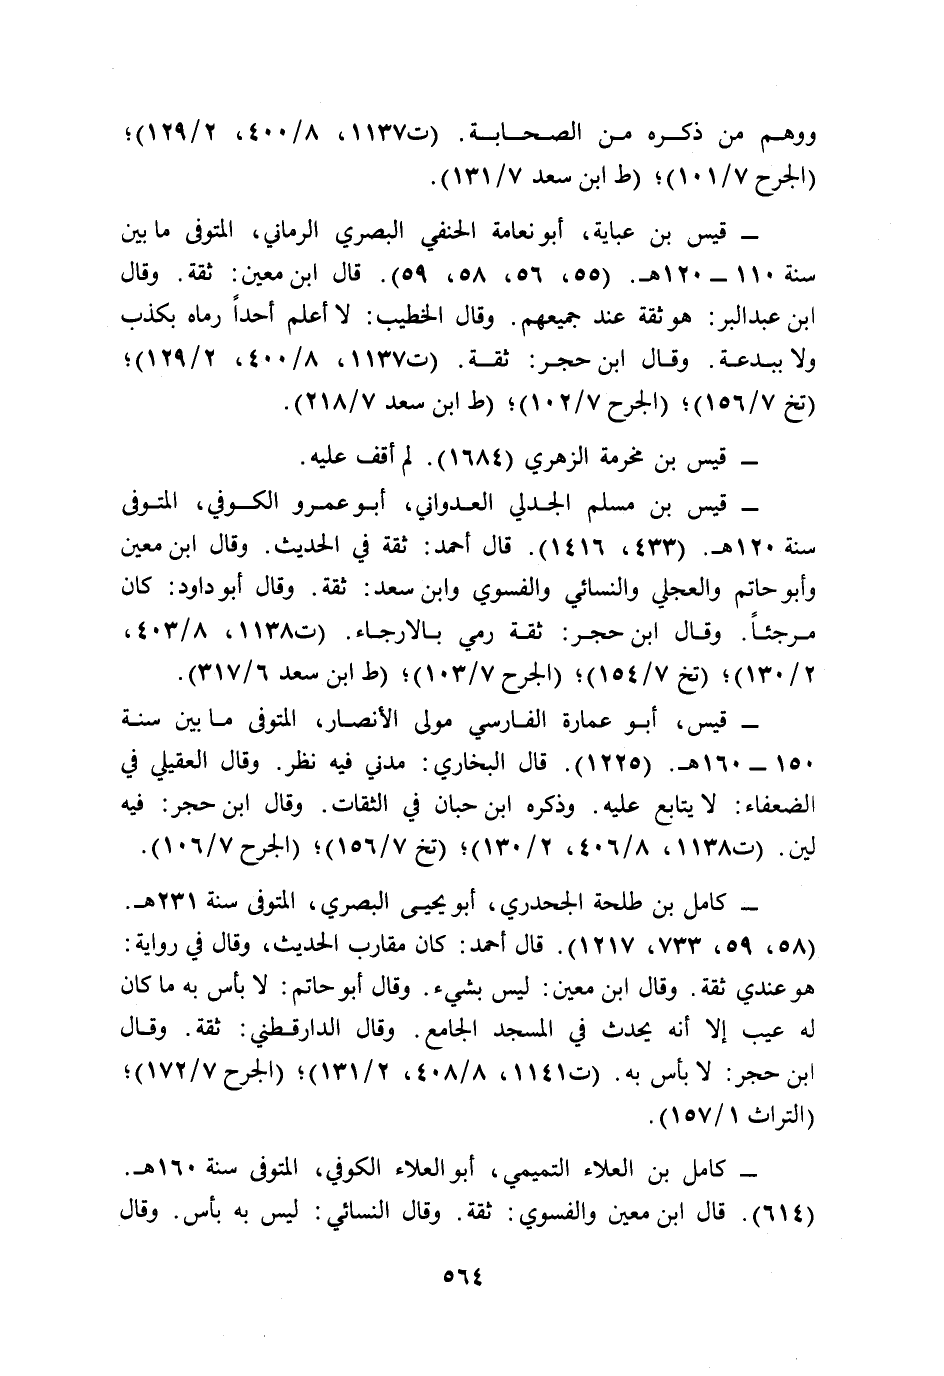 ووهم من ذكره من الصحابة. (ت١١٣٧، ٤٠٠/٨، ١٢٩/٢)؛
(الجرح ١٠١/٧)؛ (ط ابن سعد ١٣١/٧).
ــ قيس بن عباية، أبو نعامة الحنفي البصري الرماني، المتوفى ما بين
سنة ١١٠ ــ ١٢٠هـ. (٥٥، ٥٦، ٥٨، ٥٩). قال ابن معين: ثقة. وقال
ابن عبدالبر: هو ثقة عند جميعهم. وقال الخطيب: لا أعلم أحداً رماه بكذب
ولا ببدعة. وقال ابن حجر: ثقة. (ت١١٣٧، ٤٠٠/٨، ١٢٩/٢)؛
(تخ ١٥٦/٧)؛ (الجرح ١٠٢/٧)؛ (ط ابن سعد ٢١٨/٧).
ــ قيس بن مخرمة الزهري (١٦٨٤). لم أقف عليه.
ــ قيس بن مسلم الجدلي العدواني، أبو عمرو الكوفي، المتوفى
سنة ١٢٠هـ. (٤٣٣، ١٤١٦). قال أحمد: ثقة في الحديث. وقال ابن معين
وأبو حاتم والعجلي والنسائي والفسوي وابن سعد: ثقة. وقال أبو داود: كان
مرجئاً. وقال ابن حجر: ثقة رمي بالارجاء. (ت١١٣٨، ٤٠٣/٨،
١٣٠/٢)؛ (تخ ١٥٤/٧)؛ (الجرح ١٠٣/٧)؛ (ط ابن سعد ٣١٧/٦).
ــ قيس، أبو عمارة الفارسي مولى الأنصار، المتوفى ما بين سنة
١٥٠ ــ ١٦٠هـ. (١٢٢٥). قال البخاري: مدني فيه نظر. وقال العقيلي في
الضعفاء: لا يتابع عليه. وذكره ابن حبان في الثقات. وقال ابن حجر: فيه
لين. (ت١١٣٨، ٤٠٦/٨، ١٣٠/٢)؛ (تخ ١٥٦/٧)؛ (الجرح ١٠٦/٧).
ــ كامل بن طلحة الجحدري، أبو يحيى البصري، المتوفى سنة ٢٣١هـ.
(٥٨، ٥٩، ٧٣٣، ١٢١٧). قال أحمد: كان مقارب الحديث، وقال في رواية:
هو عندي ثقة. وقال ابن معين: ليس بشيء. وقال أبو حاتم: لا بأس به ما كان
له عيب إلا أنه يحدث في المسجد الجامع. وقال الدارقطني: ثقة. وقال
ابن حجر: لا بأس به. (ت١١٤١، ٤٠٨/٨، ١٣١/٢)؛ (الجرح ١٧٢/٧)؛
(التراث ١٥٧/١).
ــ كامل بن العلاء التميمي، أبو العلاء الكوفي، المتوفى سنة ١٦٠هـ.
(٦١٤). قال ابن معين والفسوي: ثقة. وقال النسائي: ليس به بأس. وقال
٥٦٤